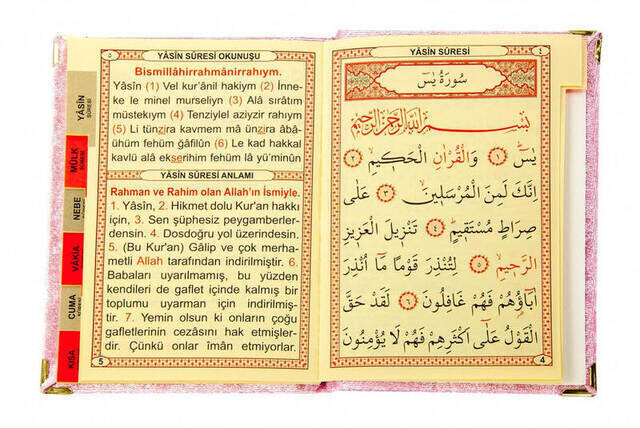 YÂSİN SÛRESİ
٤
سُورَةُ يٰسٓ
بِسْمِ اللّٰهِ الرَّحْمٰنِ الرَّحِيمِ
يٰسٓ ﴿١﴾ وَالْقُرْاٰنِ الْحَك۪يمِ ﴿٢﴾
اِنَّكَ لَمِنَ الْمُرْسَل۪ينَ ﴿٣﴾ عَلٰى
صِرَاطٍ مُسْتَق۪يمٍ ﴿٤﴾ تَنْز۪يلَ الْعَز۪يزِ
الرَّح۪يمِ ﴿٥﴾ لِتُنْذِرَ قَوْمًا مَٓا اُنْذِرَ
اٰبَٓاؤُ۬هُمْ فَهُمْ غَافِلُونَ ﴿٦﴾ لَقَدْ حَقَّ
الْقَوْلُ عَلٰٓى اَكْثَرِهِمْ فَهُمْ لَا يُؤْمِنُونَ
4
٥
YÂSİN SÛRESİ OKUNUŞU
Bismillâhirrahmânirrahıym.
Yâsîn (1) Vel kur'ânil hakiym (2) İnne-
ke le minel murseliyn (3) Alâ sırâtım
müstekıym (4) Tenziylel aziyzir rahıym
(5) Li tünzira kavmem mâ ünzira âbâ-
ühüm fehüm gâfilûn (6) Le kad hakkal
kavlü alâ ekserihim fehüm lâ yü'minûn
YÂSİN SÛRESİ ANLAMI
Rahman ve Rahim olan Allah'ın İsmiyle.
1. Yâsîn, 2. Hikmet dolu Kur'an hakkı
için, 3. Sen şüphesiz peygamberler-
densin. 4. Dosdoğru yol üzerindesin.
5. (Bu Kur'an) Gâlip ve çok merha-
metli Allah tarafından indirilmiştir. 6.
Babaları uyarılmamış, bu yüzden
kendileri de gaflet içinde kalmış bir
toplumu uyarman için indirilmiş-
tir. 7. Yemin olsun ki onların çoğu
gafletlerinin cezasını hak etmişler-
dir. Çünkü onlar îman etmiyorlar.
5
YÂSİN
SÛRESİ
MÜLK
SÛRESİ
NEBE
VÂKIA
CUMA
KISA